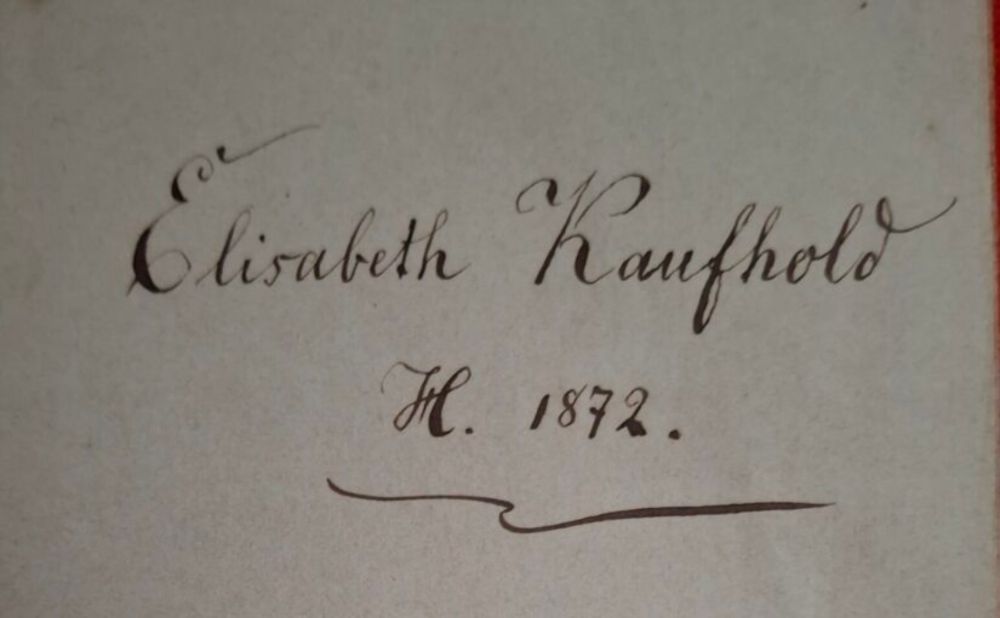 Elisabeth Kaufhold
H. 1872.